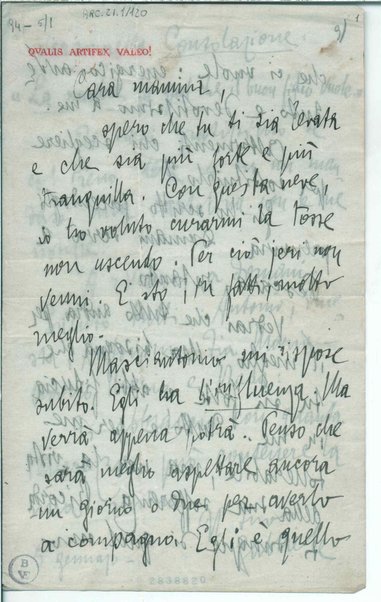 ARC.21.1/120
94-5/1
QVALIS ARTIFEX VALEO!
Cara mammi,
spero che tu ti sia levata
e che sia più forte e più
tranquilla. Con questa neve,
io ho voluto curarmi la tosse
non uscendo. Per ciò jeri non
venni. E sto, in fatti, molto
meglio.
Masciantonio mi rispose
subito. Egli ha l'influenza. Ma
verrà appena potrà. Penso che
sarà meglio aspettare ancora
un giorno o due per averlo
a compagno. Egli è quello
2838820